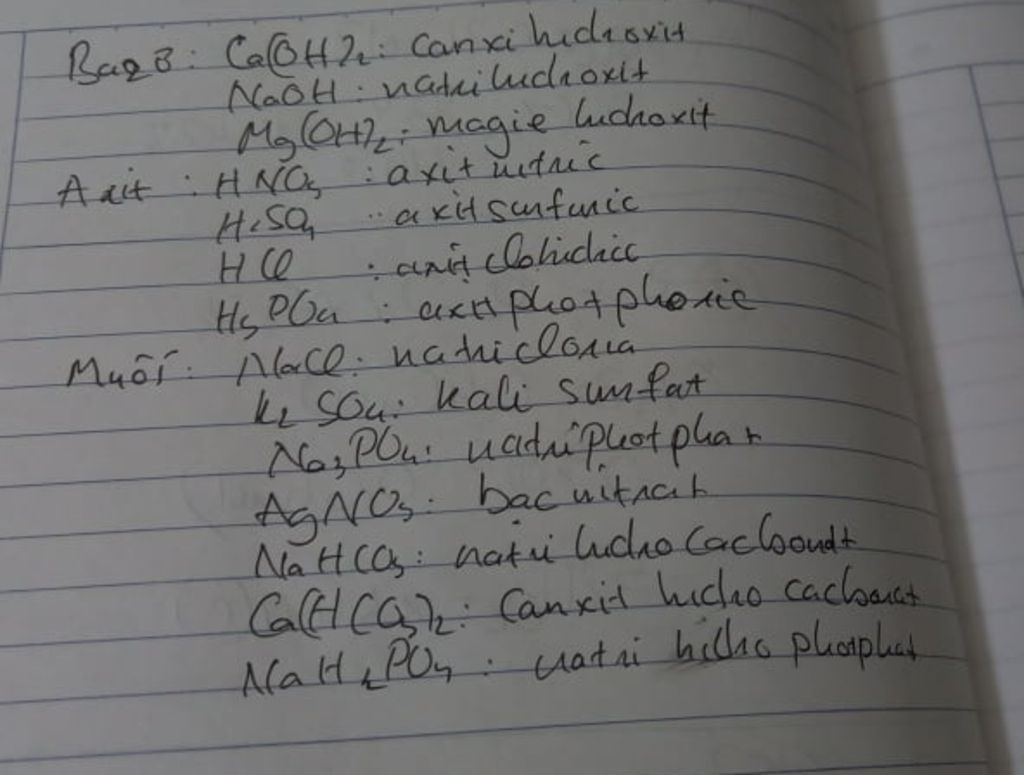 Bazơ : Ca(OH)2 : canxi hidroxit
NaOH : natri hidroxit
Mg(OH)2 : magie hidroxit
Axit : HNO3 : axit nitric
H2SO4 : axit sunfuric
HCl : axit clohidric
H3PO4 : axit photphoric
Muối : NaCl : natri clorua
K2SO4 : kali sunfat
Na3PO4 : natri photphat
AgNO3 : bac nitrat
NaHCO3 : natri hidro cacbonat
Ca(HCO3)2 : Canxit hidro cacbonat
NaH2PO4 : natri hidro photphat